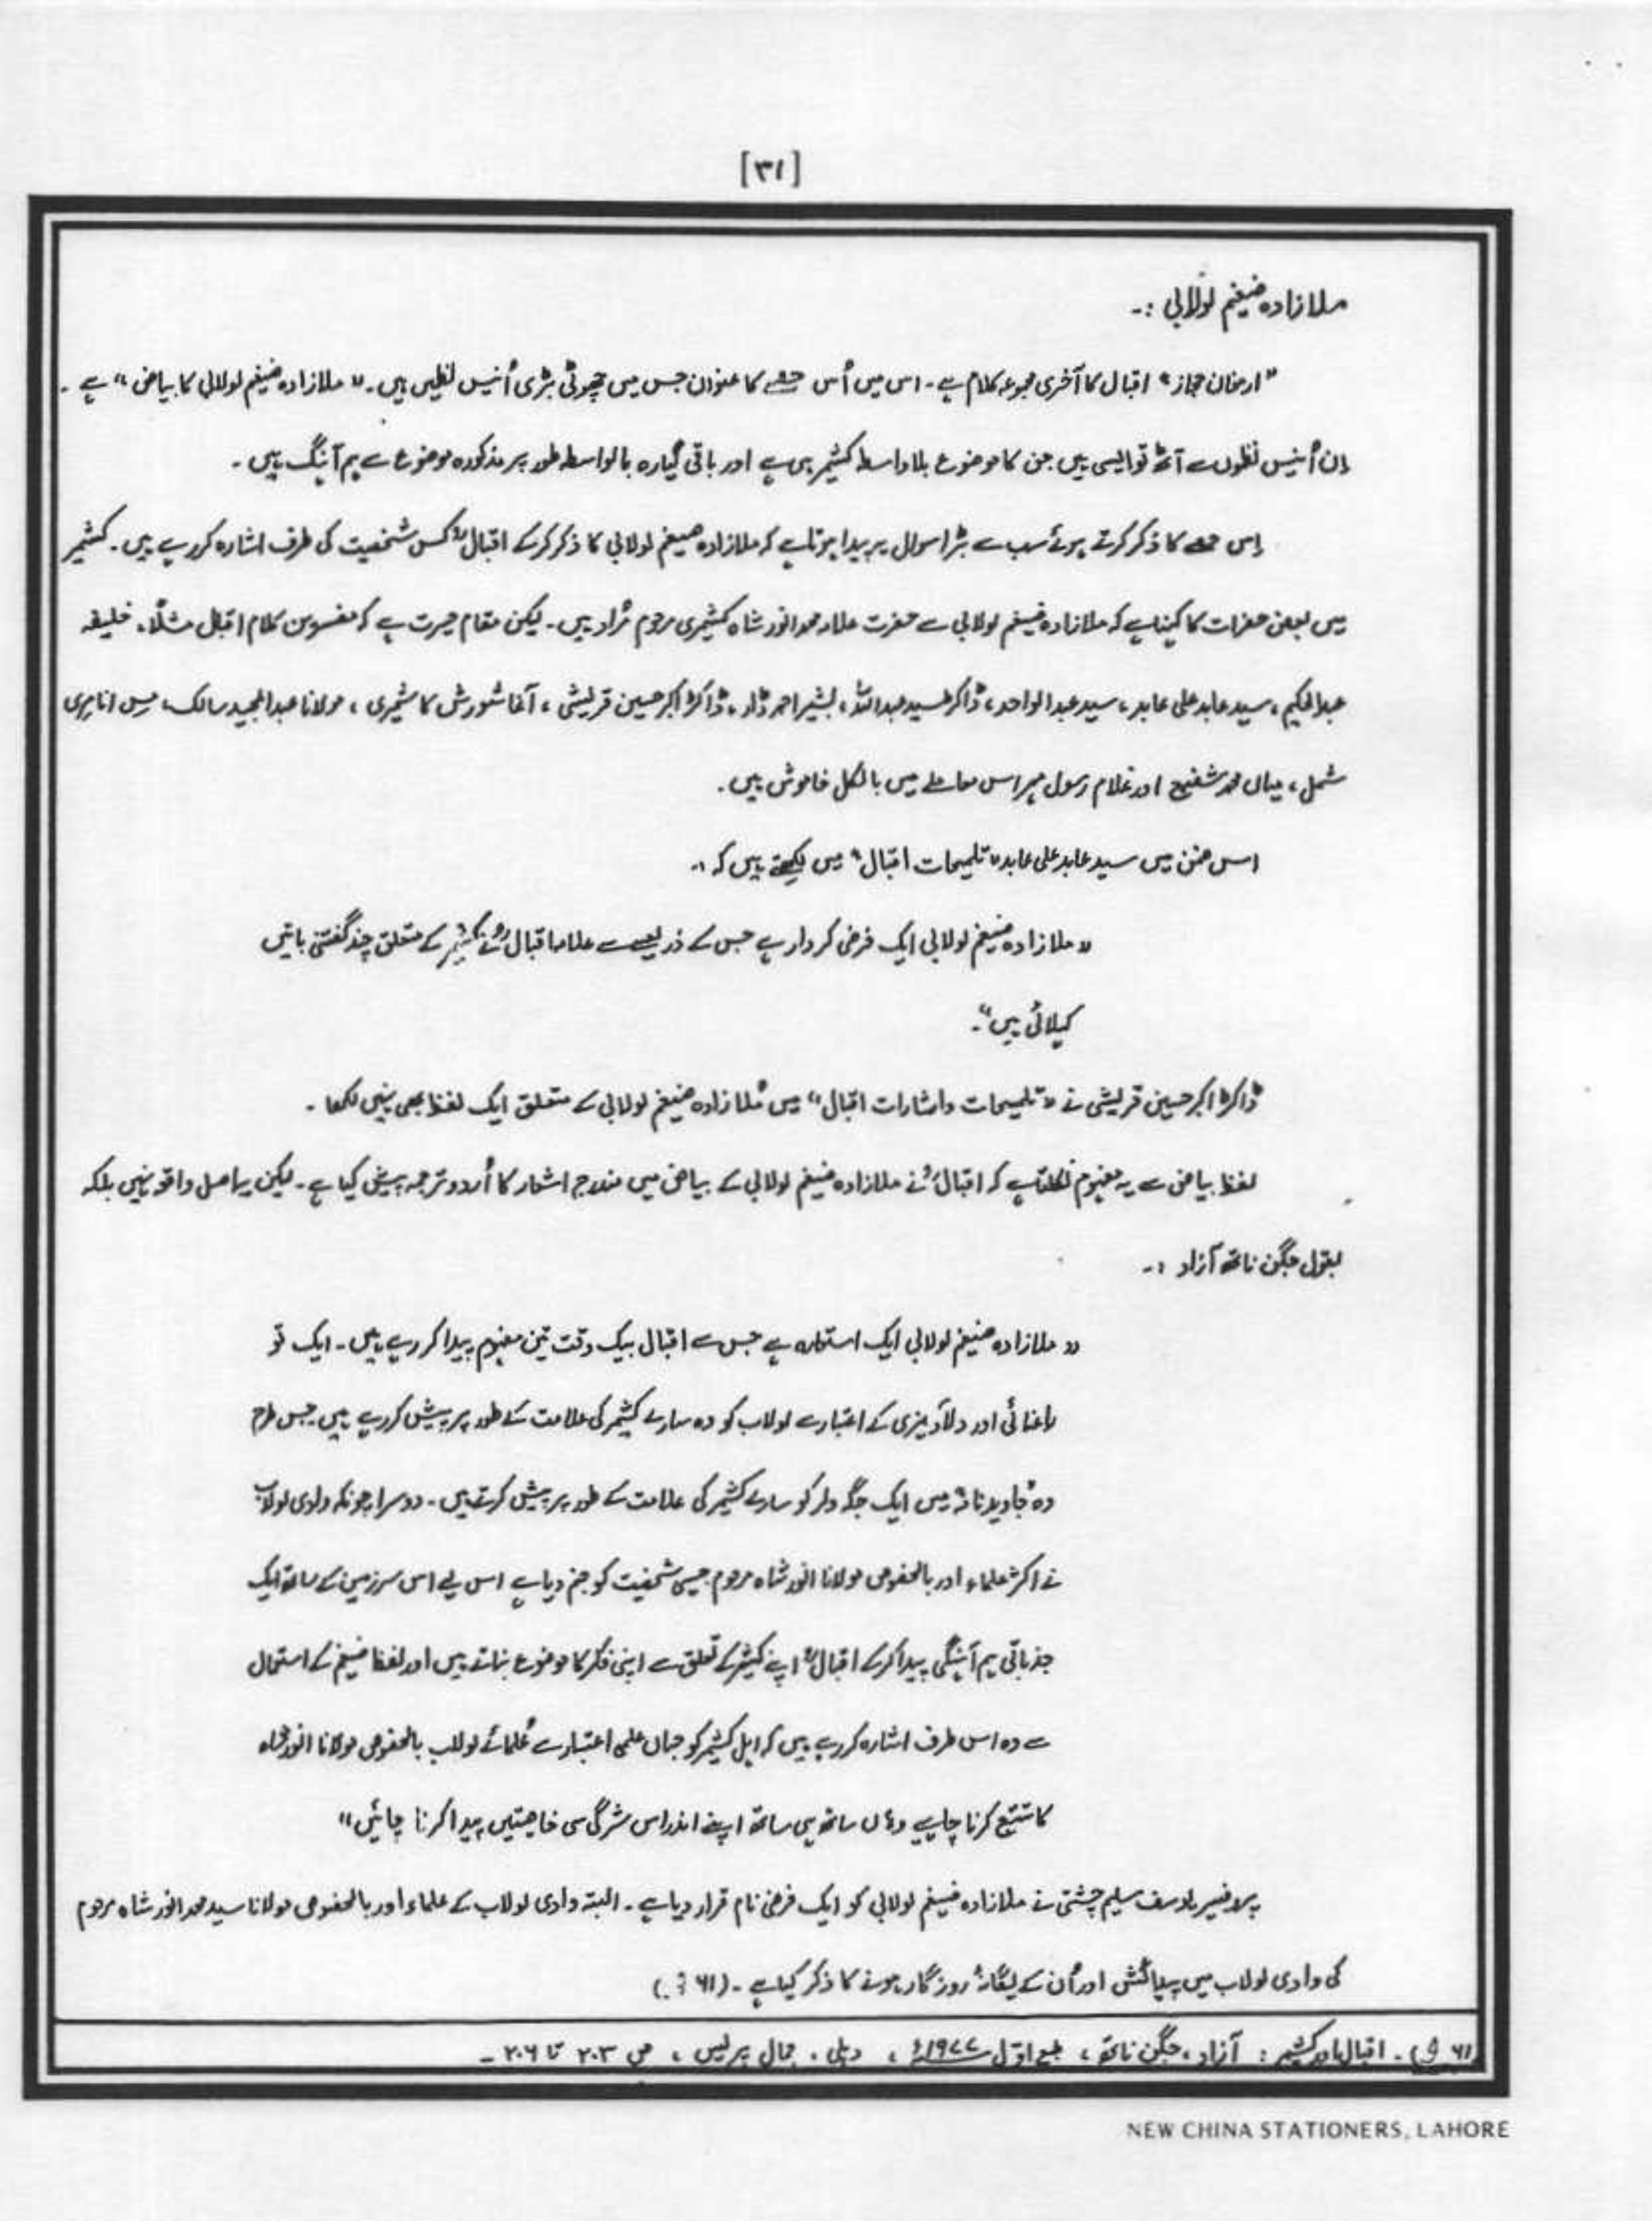 [۳۱]
ملازادہ ضیغم لولابی :۔
"ارمغان حجاز" اقبال کا آخری مجموعہ کلام ہے۔ اس میں اُس حصے کا عنوان جس میں چھوٹی بڑی اُنیس نظمیں ہیں۔ "ملازادہ ضیغم لولابی کا بیاض" ہے۔
اِن اُنیس نظموں سے آٹھ تو ایسی ہیں جن کا موضوع بلاواسطہ کشمیر ہی ہے اور باقی گیارہ بالواسطہ طور پر مذکورہ موضوع سے ہم آہنگ ہیں۔
اِس حصے کا ذکر کرتے ہوئے سب سے بڑا سوال یہ پیدا ہوتا ہے کہ ملازادہ ضیغم لولابی کا ذکر کرکے اقبالؒ کس شخصیت کی طرف اشارہ کر رہے ہیں۔ کشمیر
میں بعض حضرات کا کہنا ہے کہ ملازادہ ضیغم لولابی سے حضرت علامہ محمد انور شاہ کشمیری مرحوم مُراد ہیں۔ لیکن مقام حیرت ہے کہ مفسرین کلام اقبال مثلاً، خلیفہ
عبدالحکیم، سید عابد علی عابد، سید عبدالواحد، ڈاکٹر سید عبداللہ، بشیر احمد ڈار، ڈاکٹر اکبر حسین قریشی، آغا شورش کاشمیری، مولانا عبدالمجید سالک، مس انامیری
شمل، میاں محمد شفیع اور غلام رسول مہر اس معاملے میں بالکل خاموش ہیں۔
اس ضمن میں سید عابد علی عابد "تلمیحات اقبال" میں لکھتے ہیں کہ :
"ملازادہ ضیغم لولابی ایک فرضی کردار ہے جس کے ذریعے سے علامہ اقبالؒ نے کشمیر کے متعلق چند گفتنی باتیں
کہلائی ہیں"۔
ڈاکٹر اکبر حسین قریشی نے "تلمیحات واشارات اقبال" میں مُلازادہ ضیغم لولابی کے متعلق ایک لفظ بھی نہیں لکھا۔
لفظ بیاض سے یہ مفہوم نکلتا ہے کہ اقبالؒ نے ملازادہ ضیغم لولابی کے بیاض میں مندرج اشعار کا اُردو ترجمہ پیش کیا ہے۔ لیکن یہ اصل واقعہ نہیں بلکہ
بقول جگن ناتھ آزاد :۔
"ملازادہ ضیغم لولابی ایک استعارہ ہے جس سے اقبال بیک وقت تین مفہوم پیدا کر رہے ہیں۔ ایک تو
رعنائی اور دلآویزی کے اعتبار سے لولاب کو وہ سارے کشمیر کی علامت کے طور پر پیش کر رہے ہیں جس طرح
وہ "جاوید نامہ" میں ایک جگہ ولر کو سارے کشمیر کی علامت کے طور پر پیش کرتے ہیں۔ دوسرا چونکہ وادی لولاب
نے اکثر علماء اور بالخصوص مولانا انور شاہ مرحوم جیسی شخصیت کو جنم دیا ہے اس لیے اس سرزمین کے ساتھ ایک
جذباتی ہم آہنگی پیدا کرکے اقبالؒ اپنے کشمیر کے تعلق سے اپنی فکر کا موضوع بناتے ہیں اور لفظ ضیغم کے استعمال
سے وہ اس طرف اشارہ کر رہے ہیں کہ اہل کشمیر کو جہاں علمی اعتبار سے عُلمائے لولاب بالخصوص مولانا انور شاہ
کا تتبع کرنا چاہیے وہاں ساتھ ہی ساتھ اپنے اندر اس شرگی سی خاصیتیں پیدا کرنا چاہئیں"
پروفیسر یوسف سلیم چشتی نے ملازادہ ضیغم لولابی کو ایک فرضی نام قرار دیا ہے۔ البتہ وادی لولاب کے علماء اور بالخصوص مولانا سید محمد انور شاہ مرحوم
کی وادی لولاب میں پیدائش اور اُن کے یگانۂ روزگار ہونے کا ذکر کیا ہے۔ (۶۱ )
(۶۱ )۔ اقبال اور کشمیر : آزاد، جگن ناتھ، طبع اوّل ۱۹۷۷ء، دہلی، جمال پریس، ص ۲۰۳ تا ۲۰۶ ۔
NEW CHINA STATIONERS, LAHORE